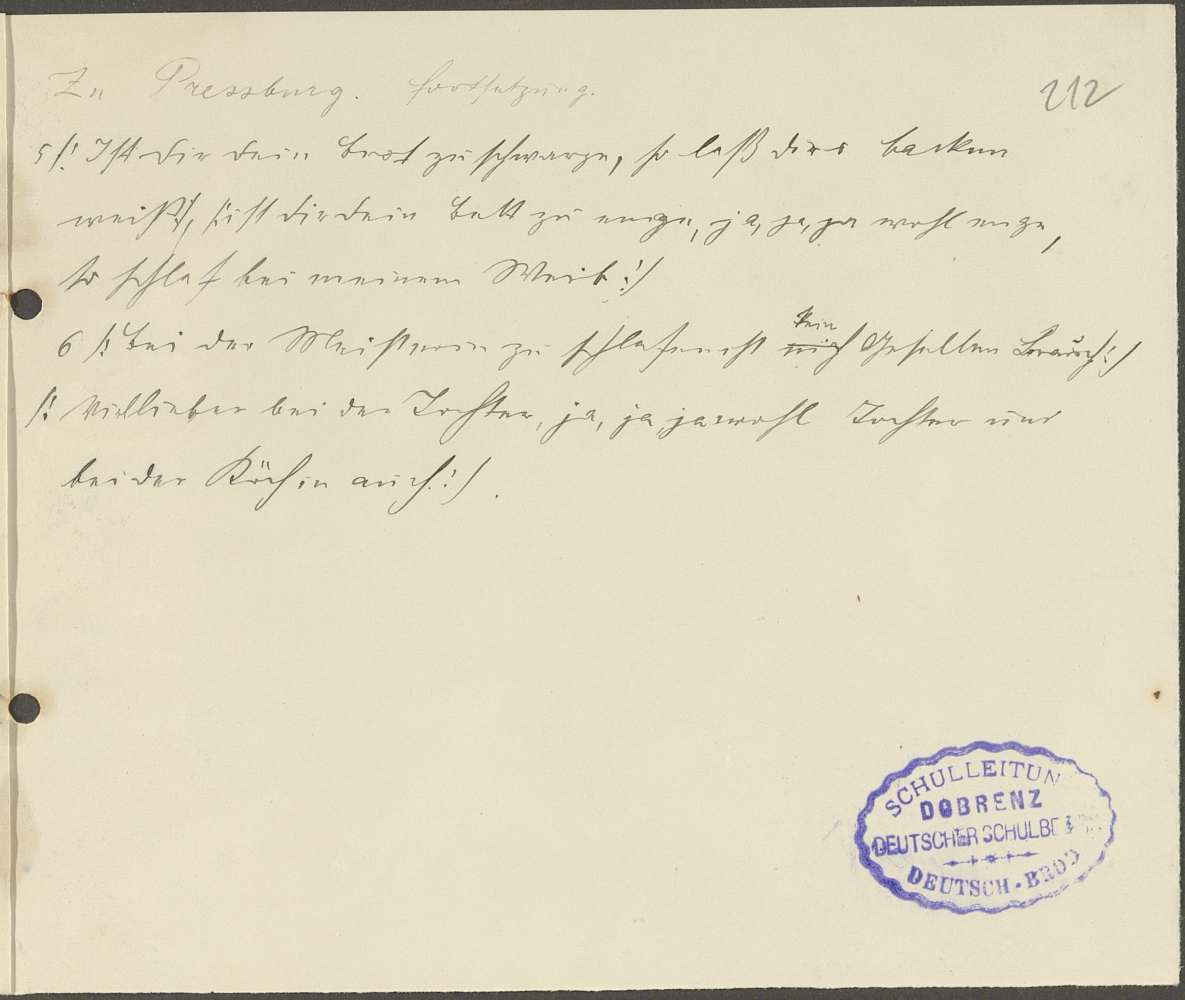 Zu Pressburg. Fortsetzung.
212
5 /: Ist dir dein Brot zu schwarze, so laß dirs backen
weiß :/, /: ist dir dein Bett zu enge, ja, ja, ja wohl enge,
so schlaf bei meinem Weib :/
6 /: Bei der Meisterin zu schlafen ist kein Gesellen Brauch :/
/: Viellieber bei der Tochter, ja, ja, ja wohl Tochter und
bei der Köchin auch :/.
SCHULLEITUN
DOBRENZ
DEUTSCHER SCHULBE
DEUTSCH-BROD